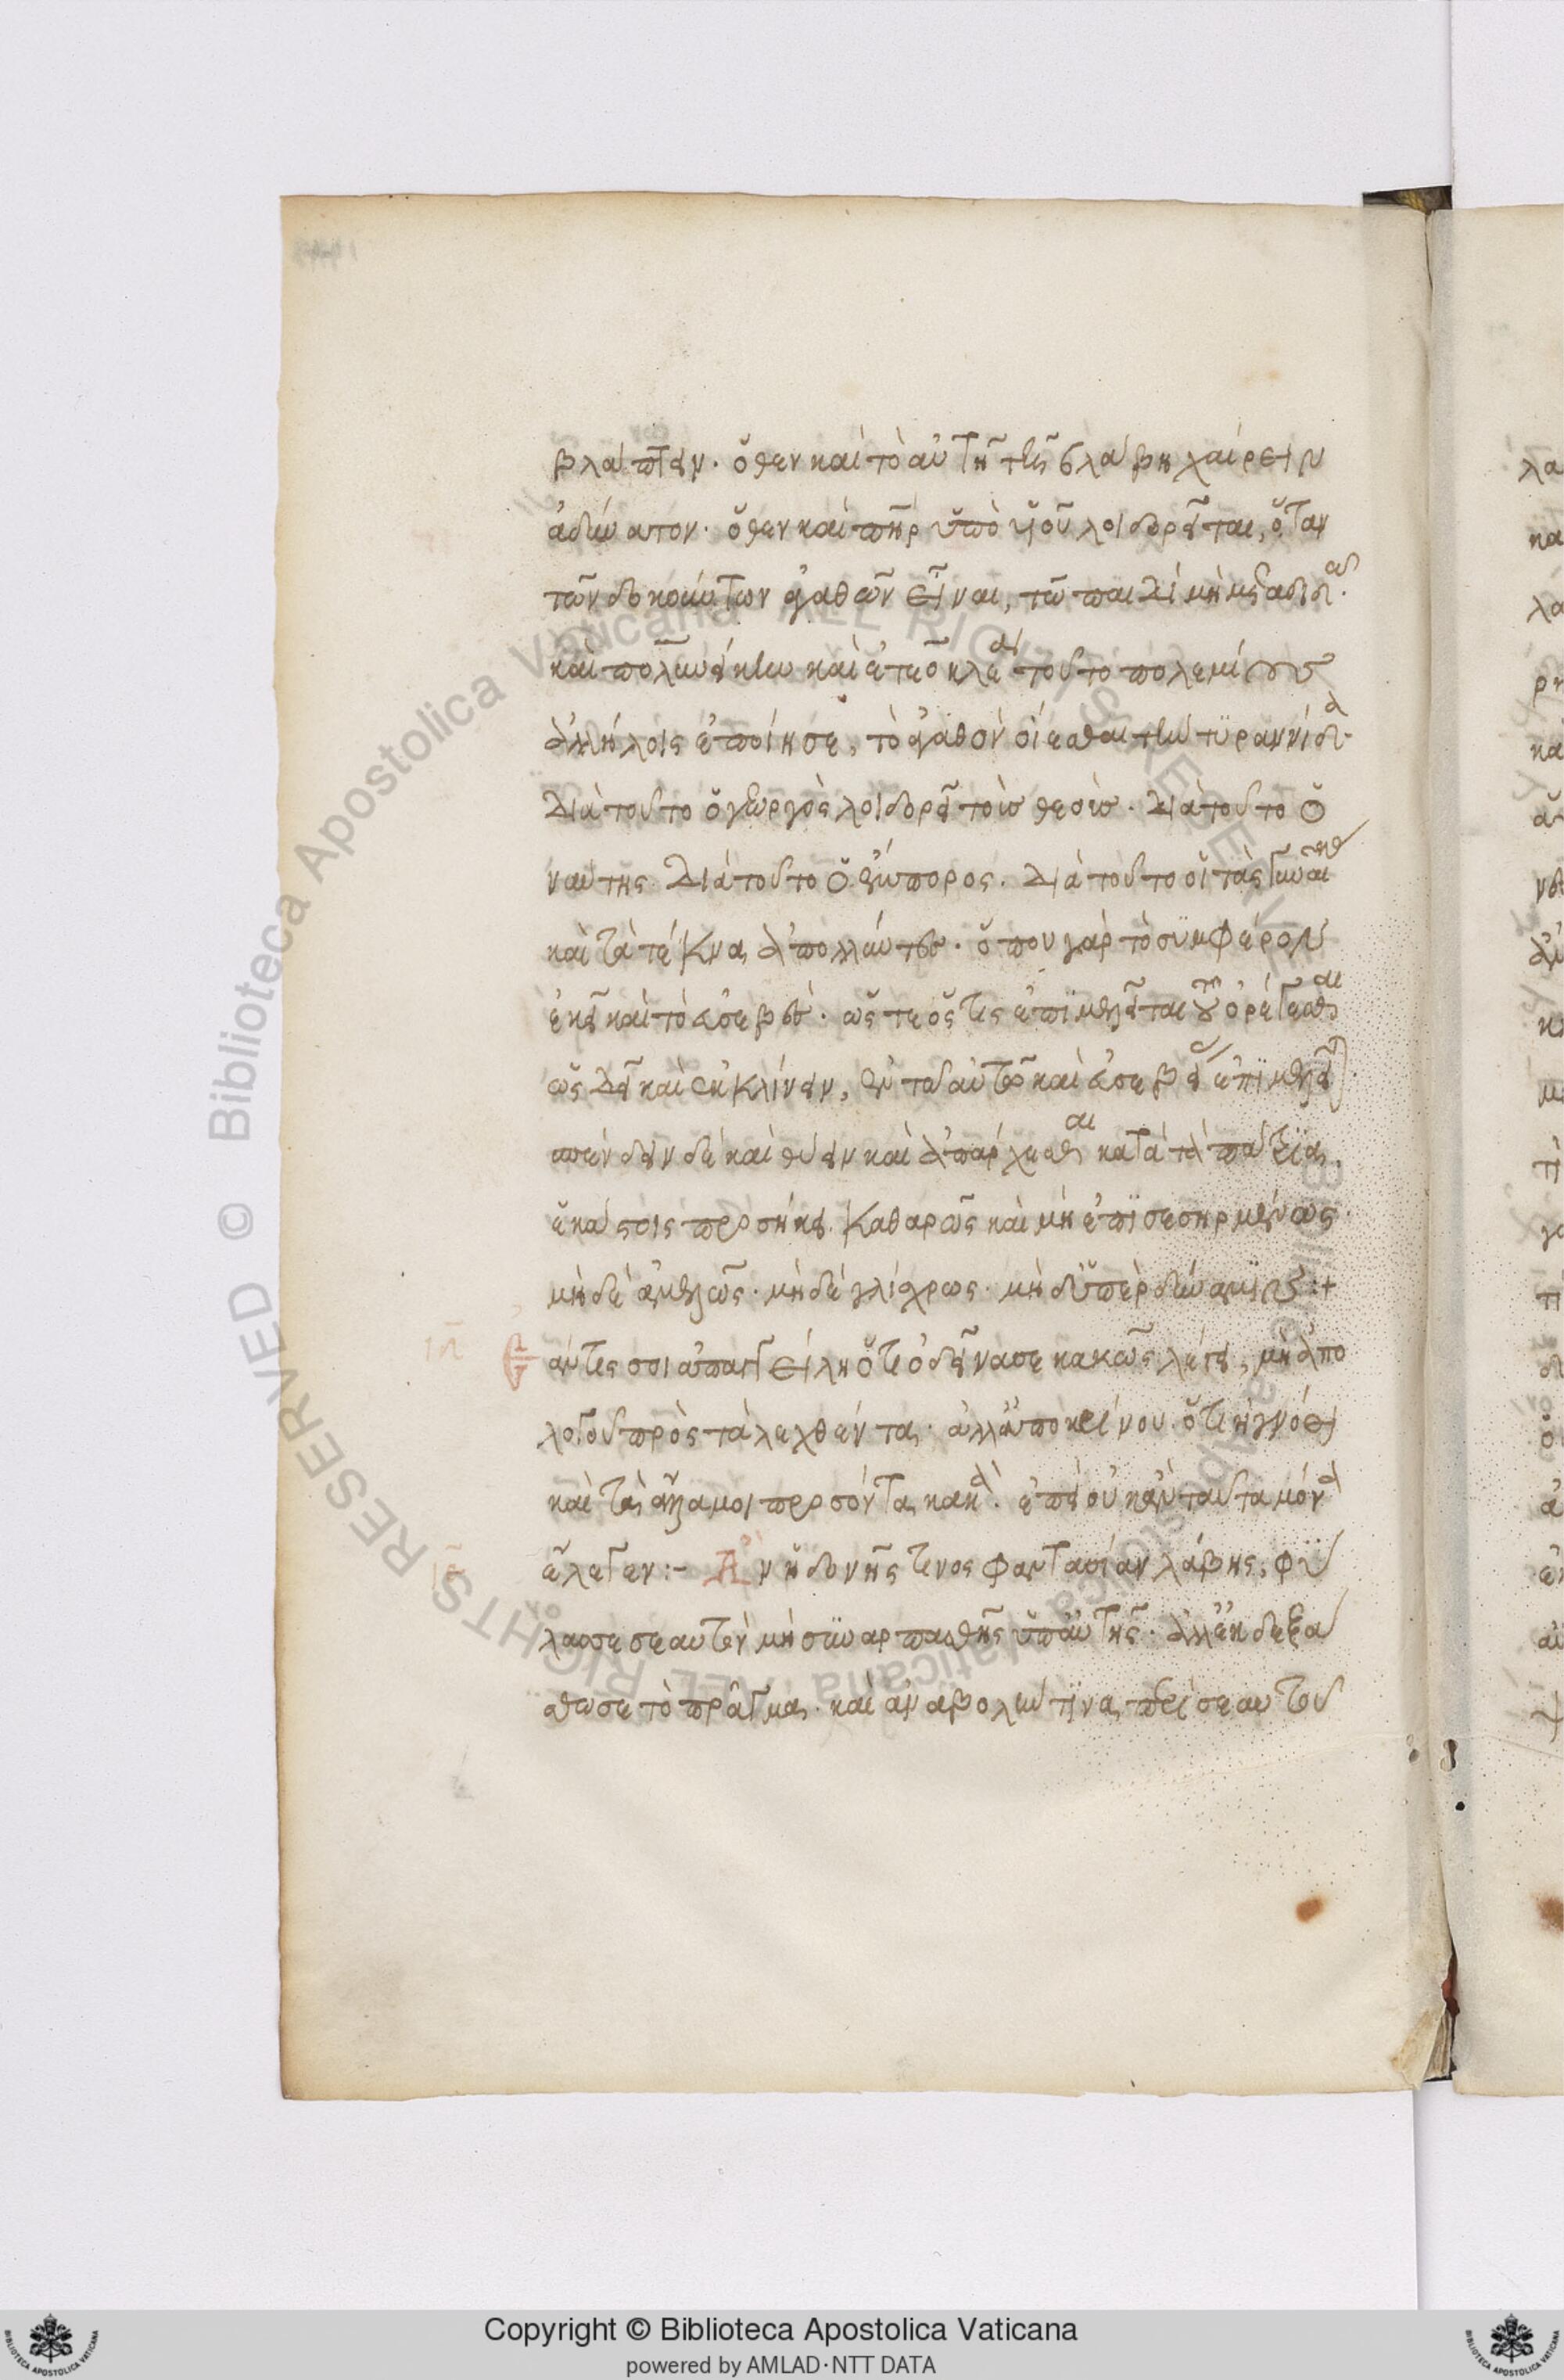 βλάπτειν. ὅθεν καὶ τὸ αὐτῆ τῆ βλάβη χαίρειν
ἀδύνατον. ὅθεν καὶ πηρ ὑπὸ υἱοῦ λοιδορεῖται, ὅταν
τῶν δοκούντων ἀγαθῶν εἶναι, τῶ παιδὶ μὴ μεταδιδῶ.
καὶ πολυνείκην καὶ ἐτεοκλέα τοῦτο πολεμίους
ἀλλήλοις ἐποίησε, τὸ ἀγαθὸν οἴεσθαι τὴν τυραννίδα.
διὰ τοῦτο ὁ γεωργὸς λοιδορεῖ τοὺς θεούς. διὰ τοῦτο ὁ
ναύτης. διὰ τοῦτο ὁ ἔμπορος. διὰ τοῦτο οἱ τὰς γυναῖκας
καὶ τὰ τέκνα ἀπολλύντες. ὅπου γὰρ τὸ συμφέρον
ἐκεῖ καὶ τὸ εὐσεβές. ὥστε ὅστις ἐπιμελεῖται τοῦ ὀρέγεσθαι
ὡς δεῖ καὶ ἐκκλίνειν, ἐν ταὐτῶ καὶ εὐσεβείας ἐπιμελεῖται.
σπένδειν δὲ καὶ θύειν καὶ ἀπάρχεσθαι κατὰ τὰ πάτρια,
ἑκάστοις προσήκει. καθαρῶς καὶ μὴ ἐπισεσηρμένως.
μηδὲ ἀμελῶς. μηδὲ γλίχρως. μηδ' ὑπὲρ δύναμιν:+
ιδ ἄν τίς σοι ἀπαγγείλη ὅτι ὁ δεῖνά σε κακῶς λέγει, μὴ ἀπο
λογοῦ πρὸς τὰ λεχθέντα. ἀλλ' ἀποκρίνου. ὅτι ἠγνόει
καὶ τὰ ἄλλα μοι προσόντα κακά. ἐπεὶ οὐκ ἂν ταῦτα μόνα
ιε ἔλεγεν:- Ἂν ἡδονῆς τινος φαντασίαν λάβης, φύ
λασσε σεαυτὸν μὴ συναρπασθῆς ὑπ' αὐτῆς. ἀλλ' ἐκδεξά
σθω σε τὸ πρᾶγμα. καὶ ἀναβολήν τινα παρὰ σεαυτοῦ
Copyright © Biblioteca Apostolica Vaticana
powered by AMLAD·NTT DATA